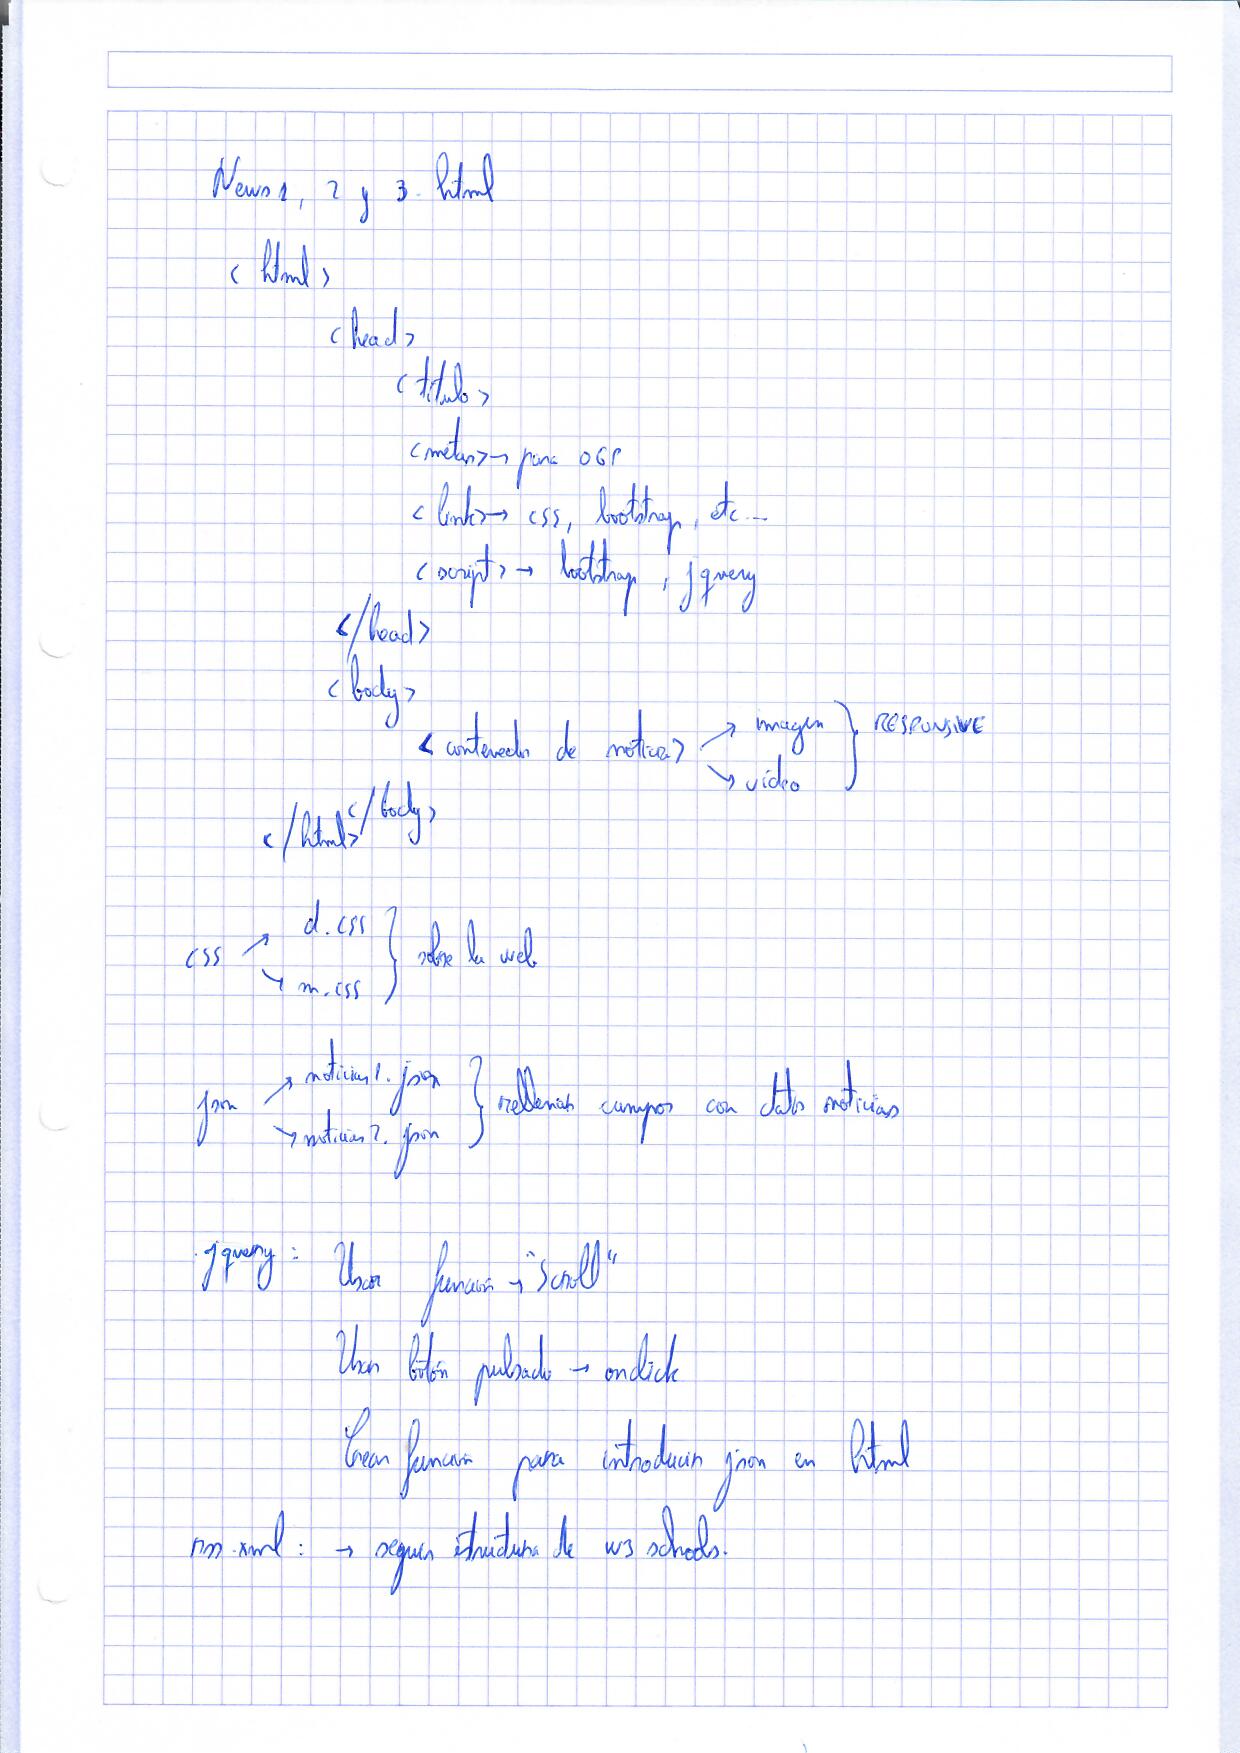 News1, 2 y 3. html
<html>
<head>
<titulo>
<metas> → para OGP
<link> → css, bootstrap, etc...
<script> → bootstrap, jquery
</head>
<body>
<contenedor de noticia> → imagen
→ video
} RESPONSIVE
</body>
</html>
css → d.css
→ m.css
} sobre la web
json → noticias1.json
→ noticias2.json
} rellenar campos con datos noticias
jquery: Usar función → "Scroll"
Usar botón pulsado → onclick
Crear función para introducir json en html
rss.xml: → seguir estructura de w3 schools.